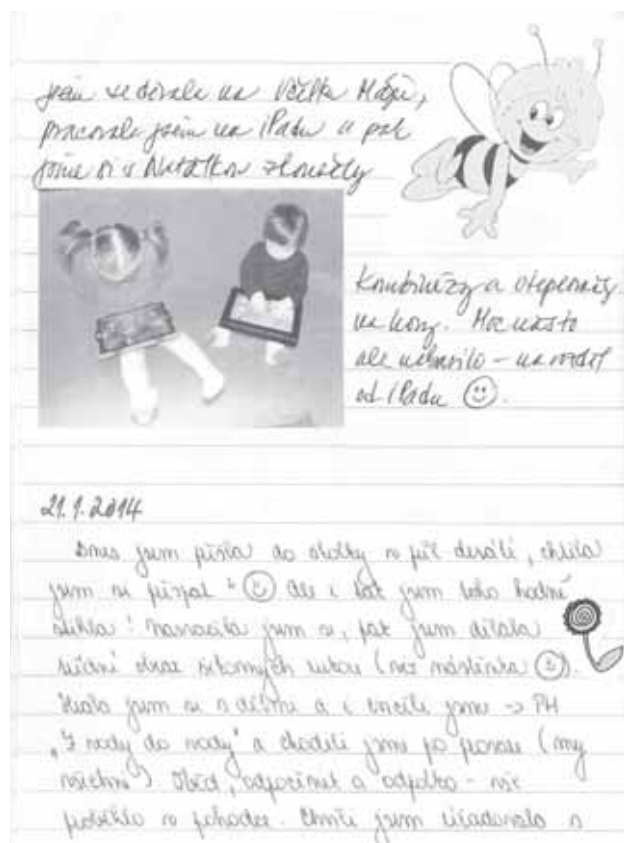 jsem se dívala na Včelku Máju,
pracovala jsem na iPadu a pak
jsme si s Natálkou zkoušely
Kombinézy a oteplováky
na hory. Moc nás to
ale nebavilo – na rozdíl
od iPadu ☺.
21.1.2014
Dnes jsem přišla do školky v půl desáté, chtěla
jsem si přispat ☺ ale i tak jsem toho hodně
stihla! Nasvačila jsem se, pak jsem dělala
třídní obraz (viz nástěnka ☺).
Hrála jsem si s dětmi a i cvičili jsme -> PH
„Z vody do vody" a chodili jsme po provaze (my
všichni). Oběd, odpočinek a odpolko – vše
proběhlo v pohodce. Chvíli jsem s